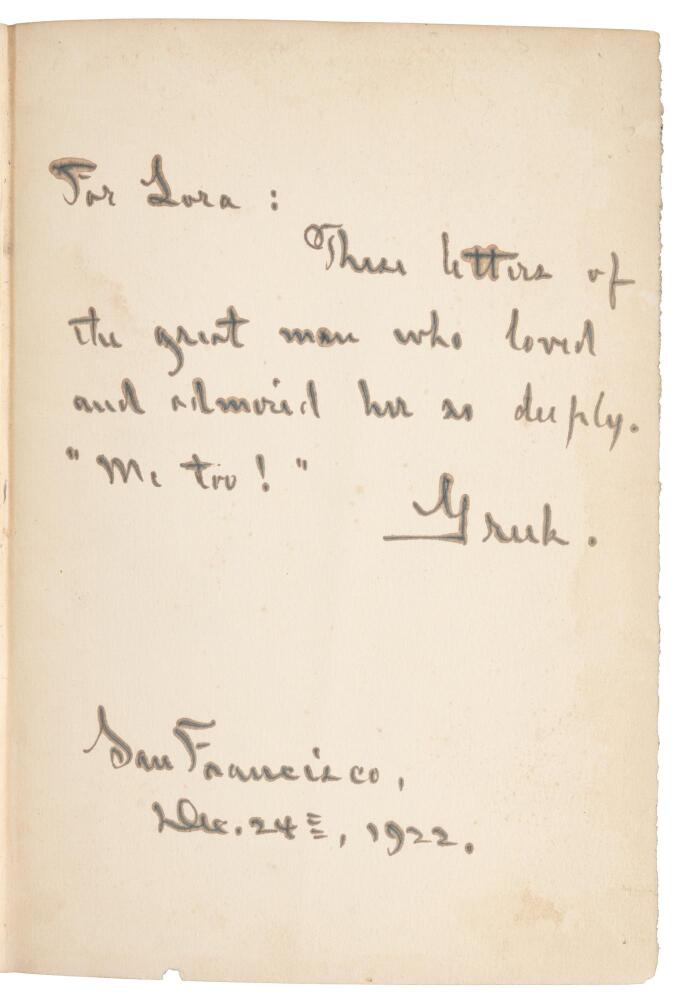 For Lora :
These letters of
the great man who loved
and admired her so deeply.
"Me too!"
Greek.
San Francisco,
Dec. 24th, 1922.